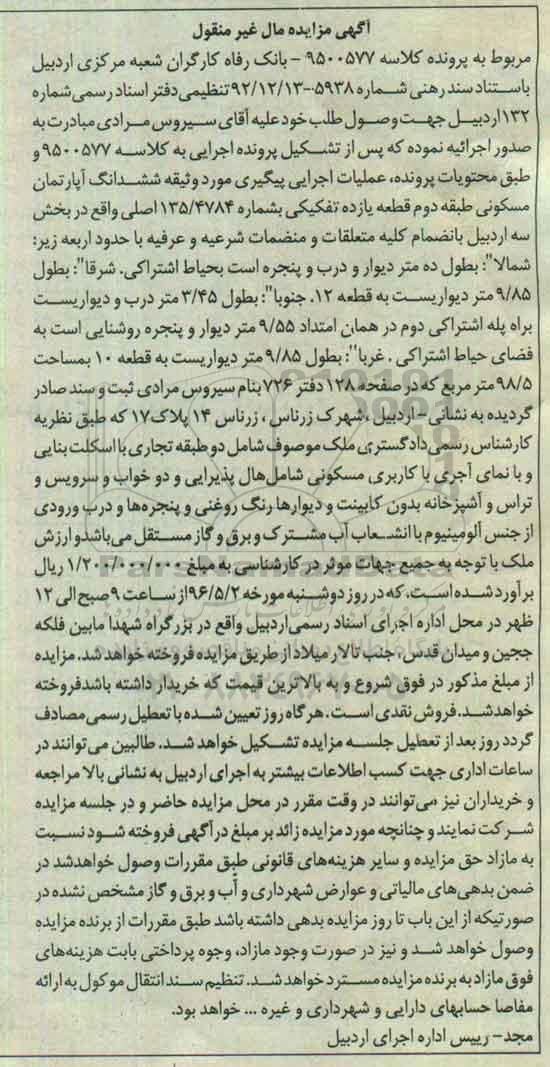 آگهی مزایده مال غیر منقول
مربوط به پرونده کلاسه ۹۵۰۰۵۷۷ - بانک رفاه کارگران شعبه مرکزی اردبیل
باستناد سند رهنی شماره ۵۹۳۸-۹۲/۱۲/۱۳ تنظیمی دفتر اسناد رسمی شماره
۱۳۲ اردبیل جهت وصول طلب خود علیه آقای سیروس مرادی مبادرت به
صدور اجرائیه نموده که پس از تشکیل پرونده اجرایی به کلاسه ۹۵۰۰۵۷۷ و
طبق محتویات پرونده، عملیات اجرایی پیگیری مورد وثیقه ششدانگ آپارتمان
مسکونی طبقه دوم قطعه یازده تفکیکی بشماره ۱۳۵/۴۷۸۴ اصلی واقع در بخش
سه اردبیل بانضمام کلیه متعلقات و منضمات شرعیه و عرفیه با حدود اربعه زیر:
شمالا": بطول ده متر دیوار و درب و پنجره است بحیاط اشتراکی. شرقا": بطول
۹/۸۵ متر دیواریست به قطعه ۱۲. جنوبا": بطول ۳/۴۵ متر درب و دیواریست
براه پله اشتراکی دوم در همان امتداد ۹/۵۵ متر دیوار و پنجره روشنایی است به
فضای حیاط اشتراکی . غربا": بطول ۹/۸۵ متر دیواریست به قطعه ۱۰ بمساحت
۹۸/۵ متر مربع که در صفحه ۱۲۸ دفتر ۷۲۶ بنام سیروس مرادی ثبت و سند صادر
گردیده به نشانی - اردبیل ، شهرک زرناس ، زرناس ۱۴ پلاک ۱۷ که طبق نظریه
کارشناس رسمی دادگستری ملک موصوف شامل دو طبقه تجاری با اسکلت بنایی
و با نمای آجری با کاربری مسکونی شامل هال پذیرایی و دو خواب و سرویس و
تراس و آشپزخانه بدون کابینت و دیوارها رنگ روغنی و پنجره‌ها و درب ورودی
از جنس آلومینیوم با انشعاب آب مشترک و برق و گاز مستقل می‌باشد و ارزش
ملک با توجه به جمیع جهات موثر در کارشناسی به مبلغ ۱/۲۰۰/۰۰۰/۰۰۰ ریال
برآورد شده است. که در روز دوشنبه مورخه ۹۶/۵/۲ از ساعت ۹ صبح الی ۱۲
ظهر در محل اداره اجرای اسناد رسمی اردبیل واقع در بزرگراه شهدا مابین فلکه
ججین و میدان قدس، جنب تالار میلاد از طریق مزایده فروخته خواهد شد. مزایده
از مبلغ مذکور در فوق شروع و به بالاترین قیمت که خریدار داشته باشد فروخته
خواهد شد. فروش نقدی است. هر گاه روز تعیین شده با تعطیل رسمی مصادف
گردد روز بعد از تعطیل جلسه مزایده تشکیل خواهد شد. طالبین می‌توانند در
ساعات اداری جهت کسب اطلاعات بیشتر به اجرای اردبیل به نشانی بالا مراجعه
و خریداران نیز می‌توانند در وقت مقرر در محل مزایده حاضر و در جلسه مزایده
شرکت نمایند و چنانچه مورد مزایده زائد بر مبلغ در آگهی فروخته شود نسبت
به مازاد حق مزایده و سایر هزینه‌های قانونی طبق مقررات وصول خواهد شد در
ضمن بدهی‌های مالیاتی و عوارض شهرداری و آب و برق و گاز مشخص نشده در
صورتیکه از این باب تا روز مزایده بدهی داشته باشد طبق مقررات از برنده مزایده
وصول خواهد شد و نیز در صورت وجود مازاد، وجوه پرداختی بابت هزینه‌های
فوق مازاد به برنده مزایده مسترد خواهد شد. تنظیم سند انتقال موکول به ارائه
مفاصا حسابهای دارایی و شهرداری و غیره ... خواهد بود.
مجد - رییس اداره اجرای اردبیل